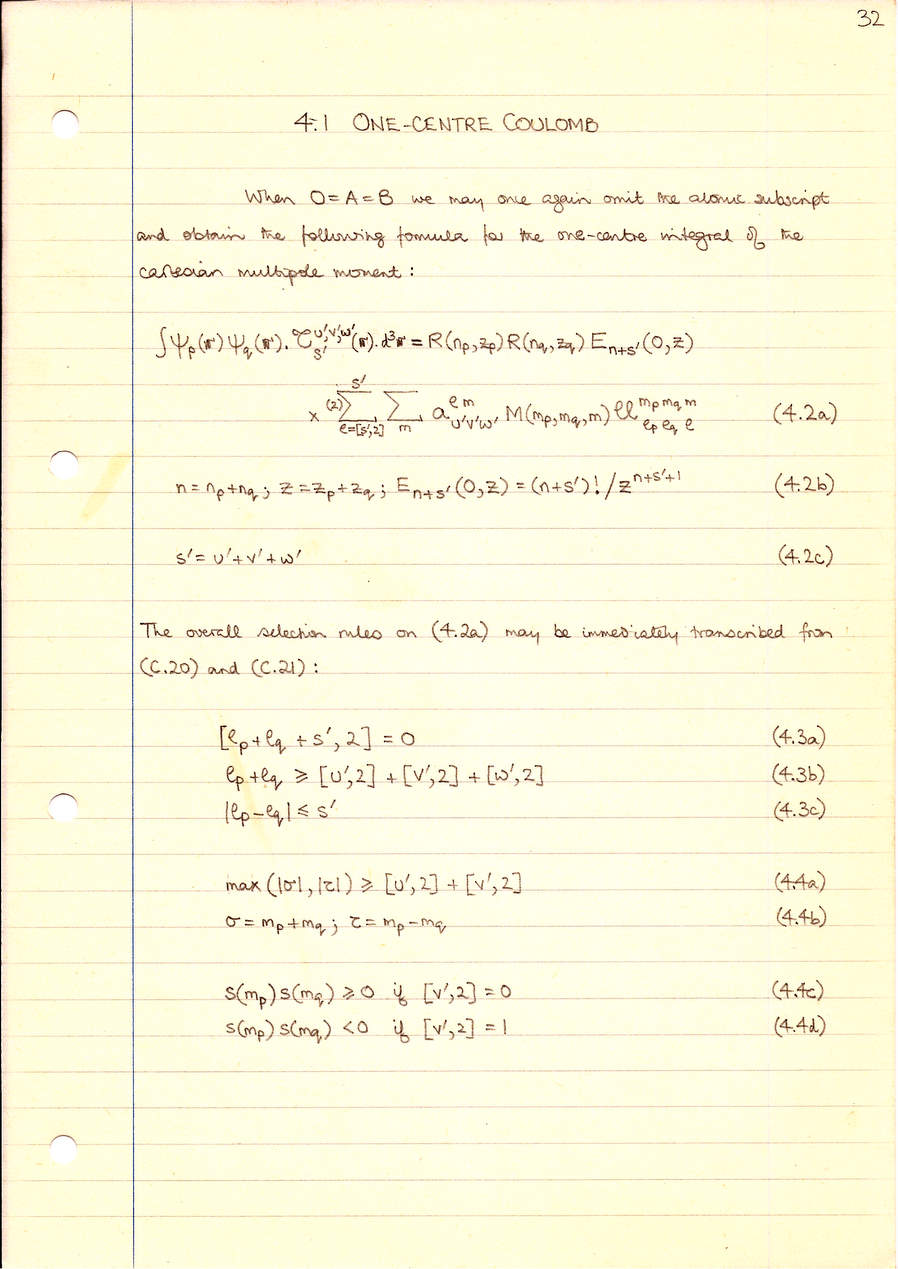 32
4.1 ONE-CENTRE COULOMB
When O=A=B we may once again omit the atomic subscript
and obtain the following formula for the one-centre integral of the
cartesian multipole moment :
∫ψ_p(r)ψ_q(r).ζ_{s'}^{u',v',w'}(r).d³r = R(n_p,z_p)R(n_q,z_q) E_{n+s'}(0,z)
× (2)∑_{ℓ=[s',2]}^{s'} ∑_m a_{u'v'w'}^{ℓ m} M(m_p,m_q,m) ll_{ℓ_p ℓ_q ℓ}^{m_p m_q m} (4.2a)
n=n_p+n_q ; z=z_p+z_q ; E_{n+s'}(0,z) = (n+s')!/z^{n+s'+1} (4.2b)
s'=u'+v'+w' (4.2c)
The overall selection rules on (4.2a) may be immediately transcribed from
(C.20) and (C.21) :
[ℓ_p+ℓ_q+s',2] = 0 (4.3a)
ℓ_p+ℓ_q ≥ [u',2] + [v',2] + [w',2] (4.3b)
|ℓ_p-ℓ_q| ≤ s' (4.3c)
max(|σ|,|τ|) ≥ [u',2] + [v',2] (4.4a)
σ=m_p+m_q ; τ=m_p-m_q (4.4b)
s(m_p)s(m_q) ≥0 if [v',2] = 0 (4.4c)
s(m_p)s(m_q) <0 if [v',2] = 1 (4.4d)